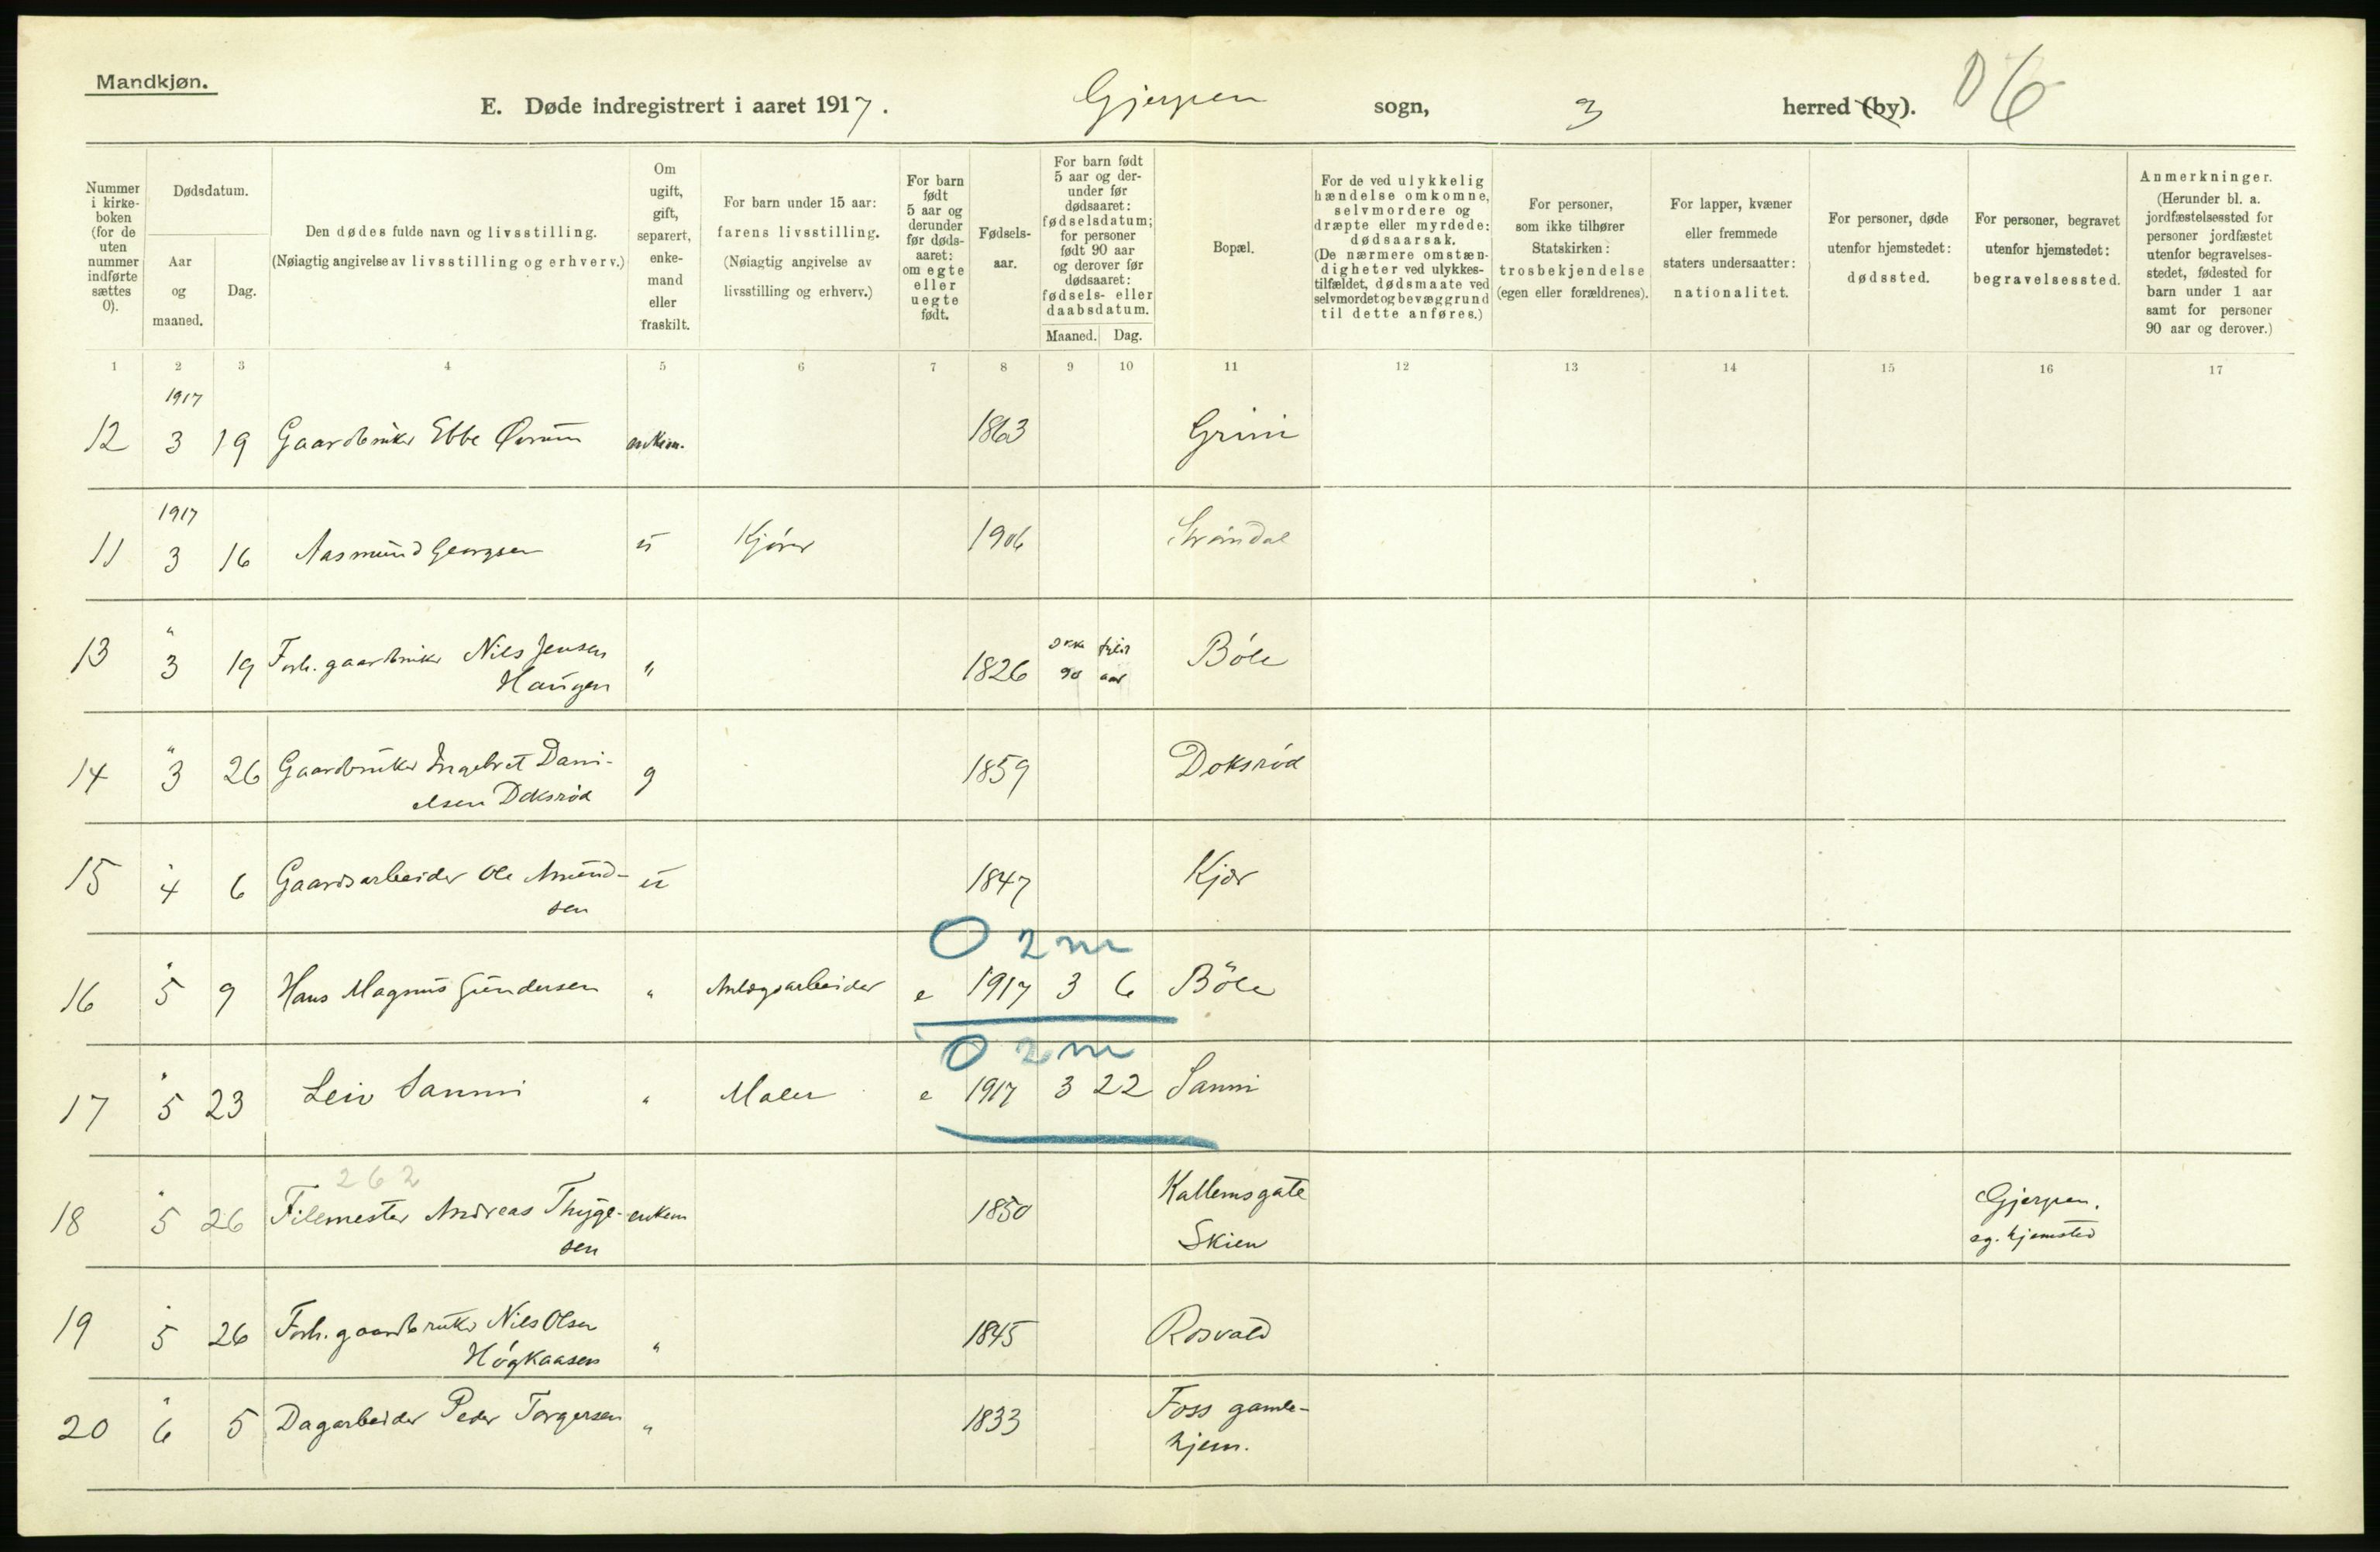 Mandkjøn.
E. Døde indregistrert i aaret 1917. Gjerpen sogn, 3 herred (by). 06
Nummer i kirke- boken (for de uten nummer indførte sættes 0).
Dødsdatum.
Aar og maaned.
Dag.
Den dødes fulde navn og livsstilling.
(Nøiagtig angivelse av livsstilling og erhverv.)
Om ugift, gift, separert, enke- mand eller fraskilt.
For barn under 15 aar:
farens livsstilling.
(Nøiagtig angivelse av
livsstilling og erhverv.)
For barn født 5 aar og derunder før døds- aaret: om egte eller uegte født.
Fødsels- aar.
For barn født 5 aar og der- under før dødsaaret: fødselsdatum; for personer født 90 aar og derover før dødsaaret: fødsels- eller daabsdatum.
Maaned. Dag.
Bopæl.
For de ved ulykkelig hændelse omkomne, selvmordere og dræpte eller myrdede: dødsaarsak. (De nærmere omstæn- digheter ved ulykkes- tilfældet, dødsmaate ved selvmordet og bevæggrund til dette anføres.)
For personer, som ikke tilhører Statskirken: trosbekjendelse (egen eller forældrenes).
For lapper, kvæner eller fremmede staters undersaatter: nationalitet.
For personer, døde utenfor hjemstedet: dødssted.
For personer, begravet utenfor hjemstedet: begravelsessted.
Anmerkninger. (Herunder bl. a. jordfæstelsessted for personer jordfæstet utenfor begravelses- stedet, fødested for barn under 1 aar samt for personer 90 aar og derover.)
1 2 3 4 5 6 7 8 9 10 11 12 13 14 15 16 17
1917
12 3 19 Gaardbruker Ebbe enkem. 1863 Grini
1917
11 3 16 Aasmund Georgsen u Kjører 1906 Strømdal
"
13 3 19 Forh. gaardbruker Nils Jensen " 1826 Ikke fyldt Bøle
Haugen 90 aar
"
14 3 26 Gaardbruker Ingebret Dani- g 1859 Doksrød
elsen Doksrød
"
15 4 6 Gaardsarbeider Ole Amund- u 1847 Kjær
sen
0 2 m
"
16 5 9 Hans Magnus Gundersen " Anlægsarbeider e 1917 3 6 Bøle
0 2 m
"
17 5 23 Leiv Sanni " Maler e 1917 3 22 Sanni
262
"
18 5 26 Filemester Andreas Thyge- enkem 1850 Kallemsgate Gjerpen.
sen Skien eg. hjemsted
"
19 5 26 Forh. gaardbruker Nils Olsen " 1845 Rosvald
Høgkaasen
"
20 6 5 Dagarbeider Peder Torgersen " 1833 Foss gamle-
hjem.